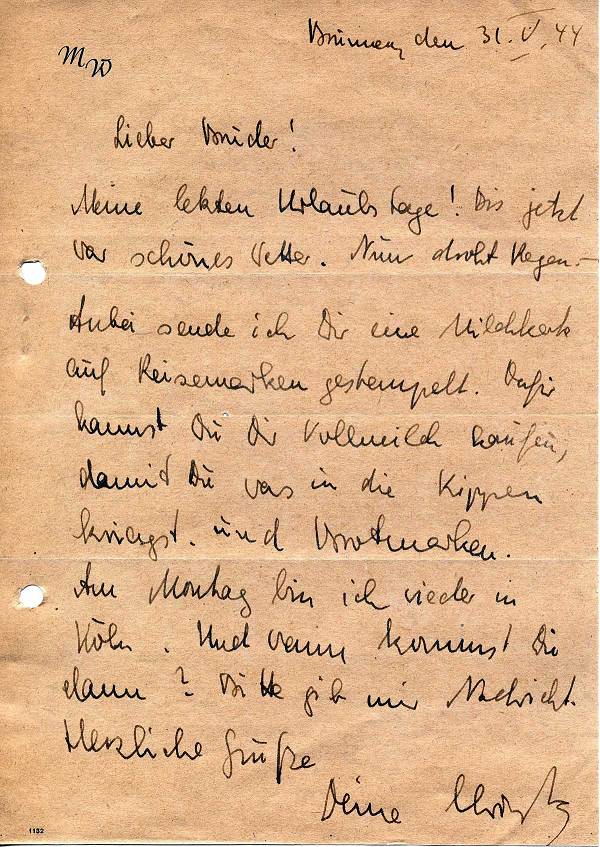 MW
den 31. V. 44
Lieber Bruder!
Meine letzten Urlaubstage! Bis jetzt
war schönes Wetter. Nun droht Regen. –
Anbei sende ich Dir eine Milchkarte
auf Reisemarken gestempelt. Dafür
kannst Du Dir Vollmilch kaufen,
damit Du was in die Rippen
kriegst. und Brotmarken.
Am Montag bin ich wieder in
Köln. Und wann kommst Du
dann? Bitte gib mir Nachricht.
Herzliche Grüße
Deine
1132